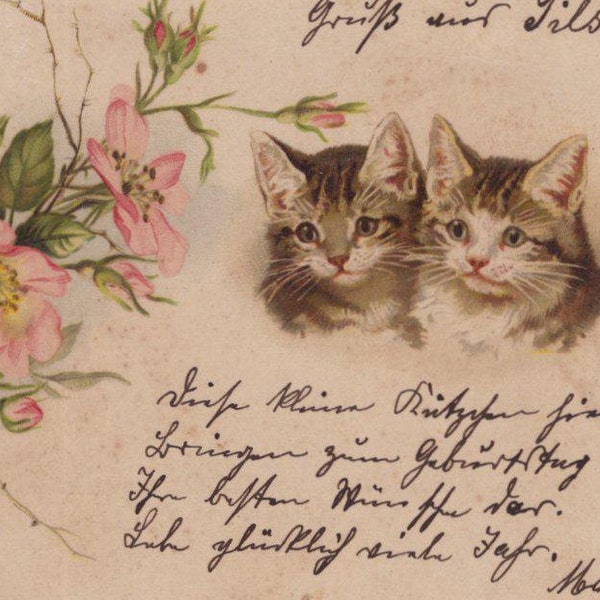 Gruß aus Tils
Diese kleine Kätzchen hie
Bringen zum Geburtstag
Ihre besten Wünsche dar.
Lebe glücklich viele Jahr.
Ma